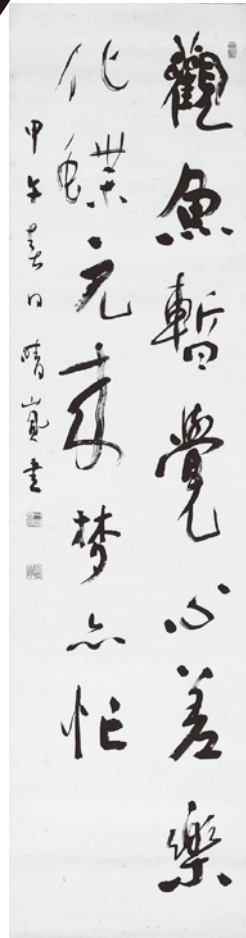 觀魚暫覺心差樂
化蝶元來夢亦忙
甲午春日晴嵐書